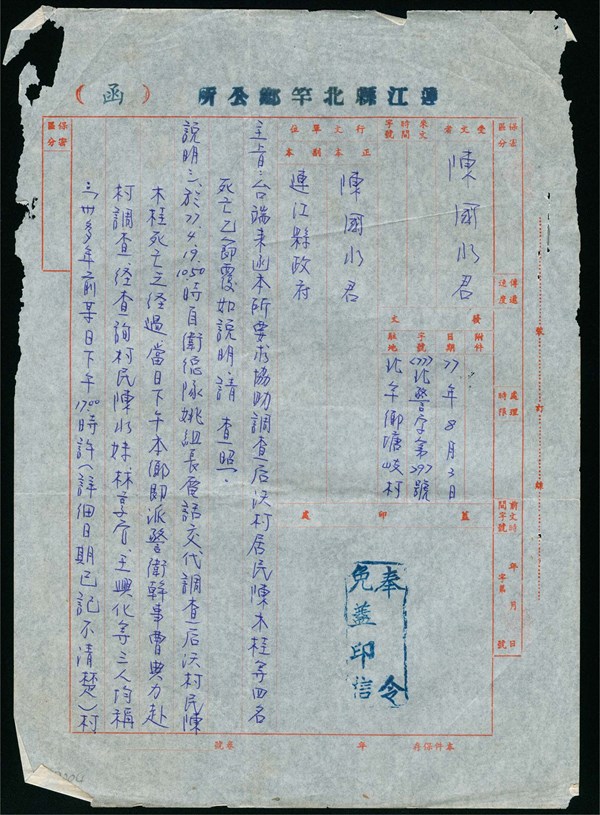 連江縣北竿鄉公所
（函）
保密區分
受文者
陳國水君
來文時間字號
行文單位
正本
陳國水君
副本
連江縣政府
保密區分
傳遞速度
處理時限
前文時間字號
年 月 日
字第 號
裝 訂 線
發文
附件
日期
77年8月3日
字號
(77)北警字第297號
駐地
北竿鄉塘岐村
蓋印處
奉令
免蓋印信
主旨：台端來函本所要求協助調查后沃村居民陳木桂等四名
死亡乙節覆如說明，請 查照。
說明：一、於77.4.19.1050時自衛總隊姚組長電話交代調查后沃村民陳
木桂死亡之經過，當日下午本鄉即派警衛幹事曹典力赴
村調查，經查詢村民陳水妹、林享官、王興化等三人均稱
卅多年前某日下午1700時許（詳細日期已記不清楚）村
本件保存 年
卷號